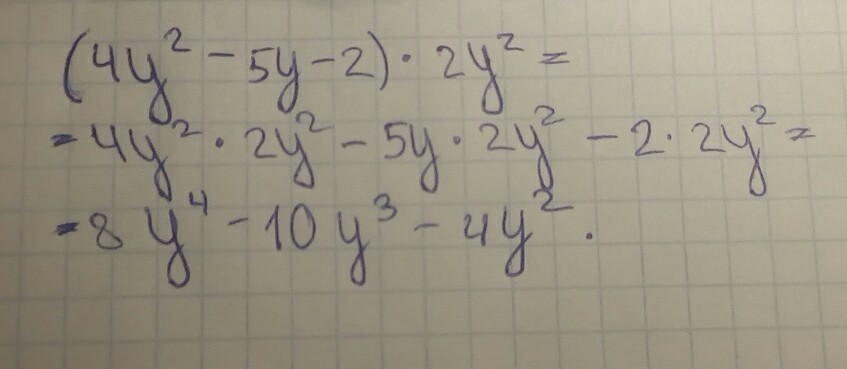 (4y² - 5y - 2) · 2y² =
= 4y² · 2y² - 5y · 2y² - 2 · 2y² =
= 8y⁴ - 10y³ - 4y².